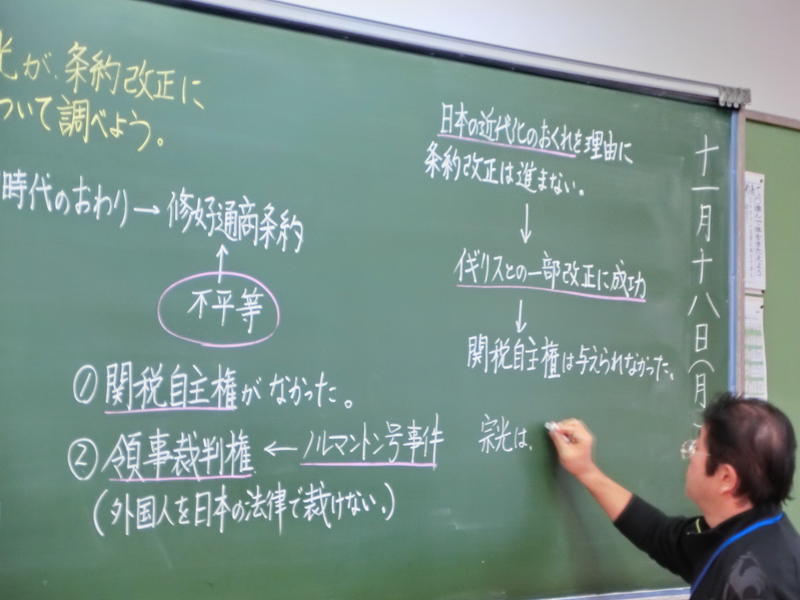 光が、条約改正に
ついて調べよう。
時代のおわり→修好通商条約
↑
不平等
①関税自主権がなかった。
②領事裁判権←ノルマントン号事件
(外国人を日本の法律で裁けない。)
日本の近代化のおくれを理由に
条約改正は進まない。
↓
イギリスとの一部改正に成功
↓
関税自主権は与えられなかった。
宗光は、
十一月十八日(月